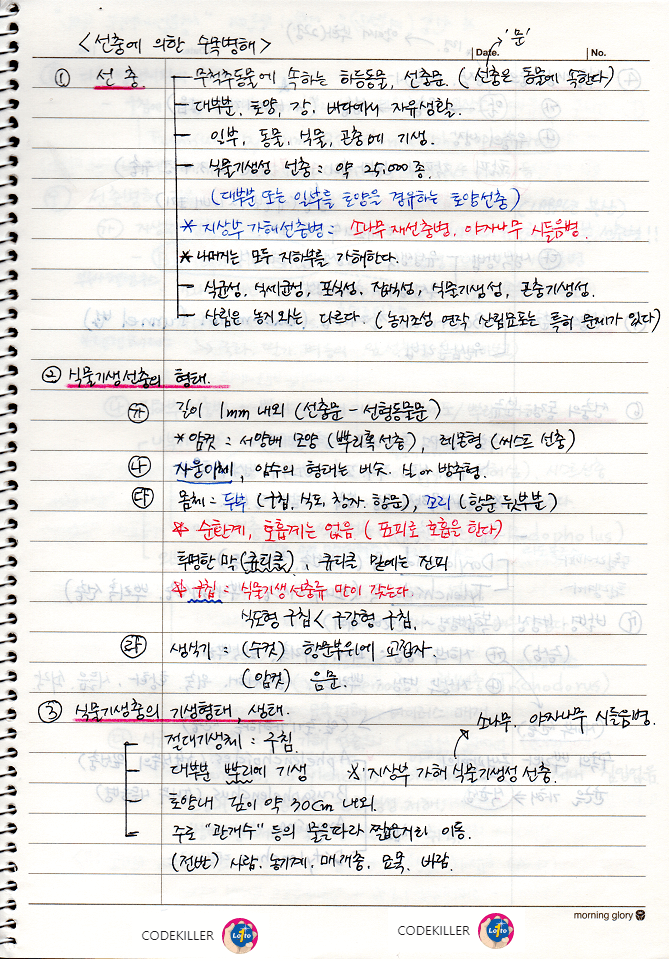 <선충에 의한 수목병해>
'문'
Date.
No.
① 선충
무척추동물에 속하는 하등동물, 선충문. (선충은 동물에 속한다)
대부분, 토양, 강, 바다에서 자유생활.
일부, 동물, 식물, 곤충에 기생.
식물기생성 선충 : 약 25,000종.
(대부분 또는 일부를 토양을 경유하는 토양선충)
* 지상부 가해선충병 : 소나무 재선충병, 야자나무 시들음병.
* 나머지는 모두 지하부를 가해한다.
식균성, 식세균성, 포식성, 잡식성, 식물기생성, 곤충기생성.
산림은 농지와는 다르다. (농지조성 연작 산림묘포는 특히 문제가 있다)
② 식물기생선충의 형태.
㉮ 길이 1mm 내외 (선충문 - 선형동물문)
* 암컷 : 서양배 모양 (뿌리혹선충), 레몬형 (씨스트 선충)
㉯ 자웅이체, 암수의 형태는 비슷. 실 or 방추형.
㉰ 몸체 : 두부 (구침, 식도, 창자, 항문), 꼬리 (항문 뒷부분)
* 순환계, 호흡계는 없음 (표피로 호흡을 한다)
투명한 막(큐티클), 큐티클 밑에는 진피
* 구침 : 식물기생선충류 만이 갖는다.
식도형 구침 < 구강형 구침.
㉱ 생식기 : (수컷) 항문부위에 교접자.
(암컷) 음문.
③ 식물기생충의 기생형태, 생태.
소나무, 야자나무 시들음병.
절대기생체 : 구침.
대부분 뿌리에 기생
※ 지상부 가해 식물기생성 선충.
토양내 깊이 약 30cm 내외.
주로 "관개수" 등의 물을따라 짧은거리 이동.
(전반) 사람, 농기계, 매개충, 묘목, 바람.
morning glory
CODEKILLER
Lotto
CODEKILLER
Lotto